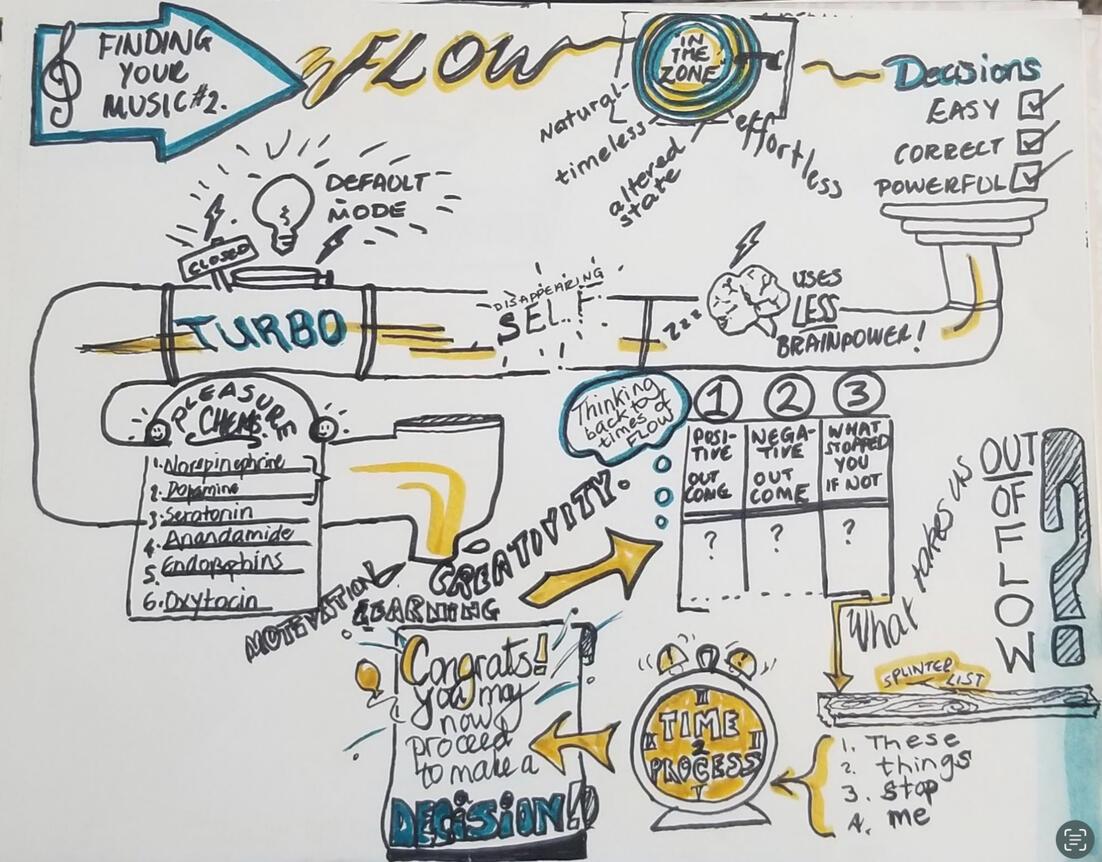 FINDING
YOUR
MUSIC #2.
FLOW
IN
THE
ZONE
Natural-
timeless
altered
state
effortless
Decisions
EASY
CORRECT
POWERFUL
DEFAULT
MODE
CLOSED
TURBO
DISAPPEARING
SEL..!
zzz
USES
LESS
BRAINPOWER!
PLEASURE
CHEMS
1. Norepinephrine
2. Dopamine
3. Seratonin
4. Anandamide
5. Endorphins
6. Oxytocin
MOTIVATION
LEARNING
CREATIVITY
Thinking
back to
times of
FLOW
1 2 3
POSI-
TIVE
OUT
COME
NEGA-
TIVE
OUT
COME
WHAT
STOPPED
YOU
IF NOT
? ? ?
What takes us
OUT
OF
FLOW
?
SPLINTER
LIST
1. These
2. things
3. stop
4. me
TIME
2
PROCESS
Congrats!
you may
now
proceed
to make a
DECISION!!